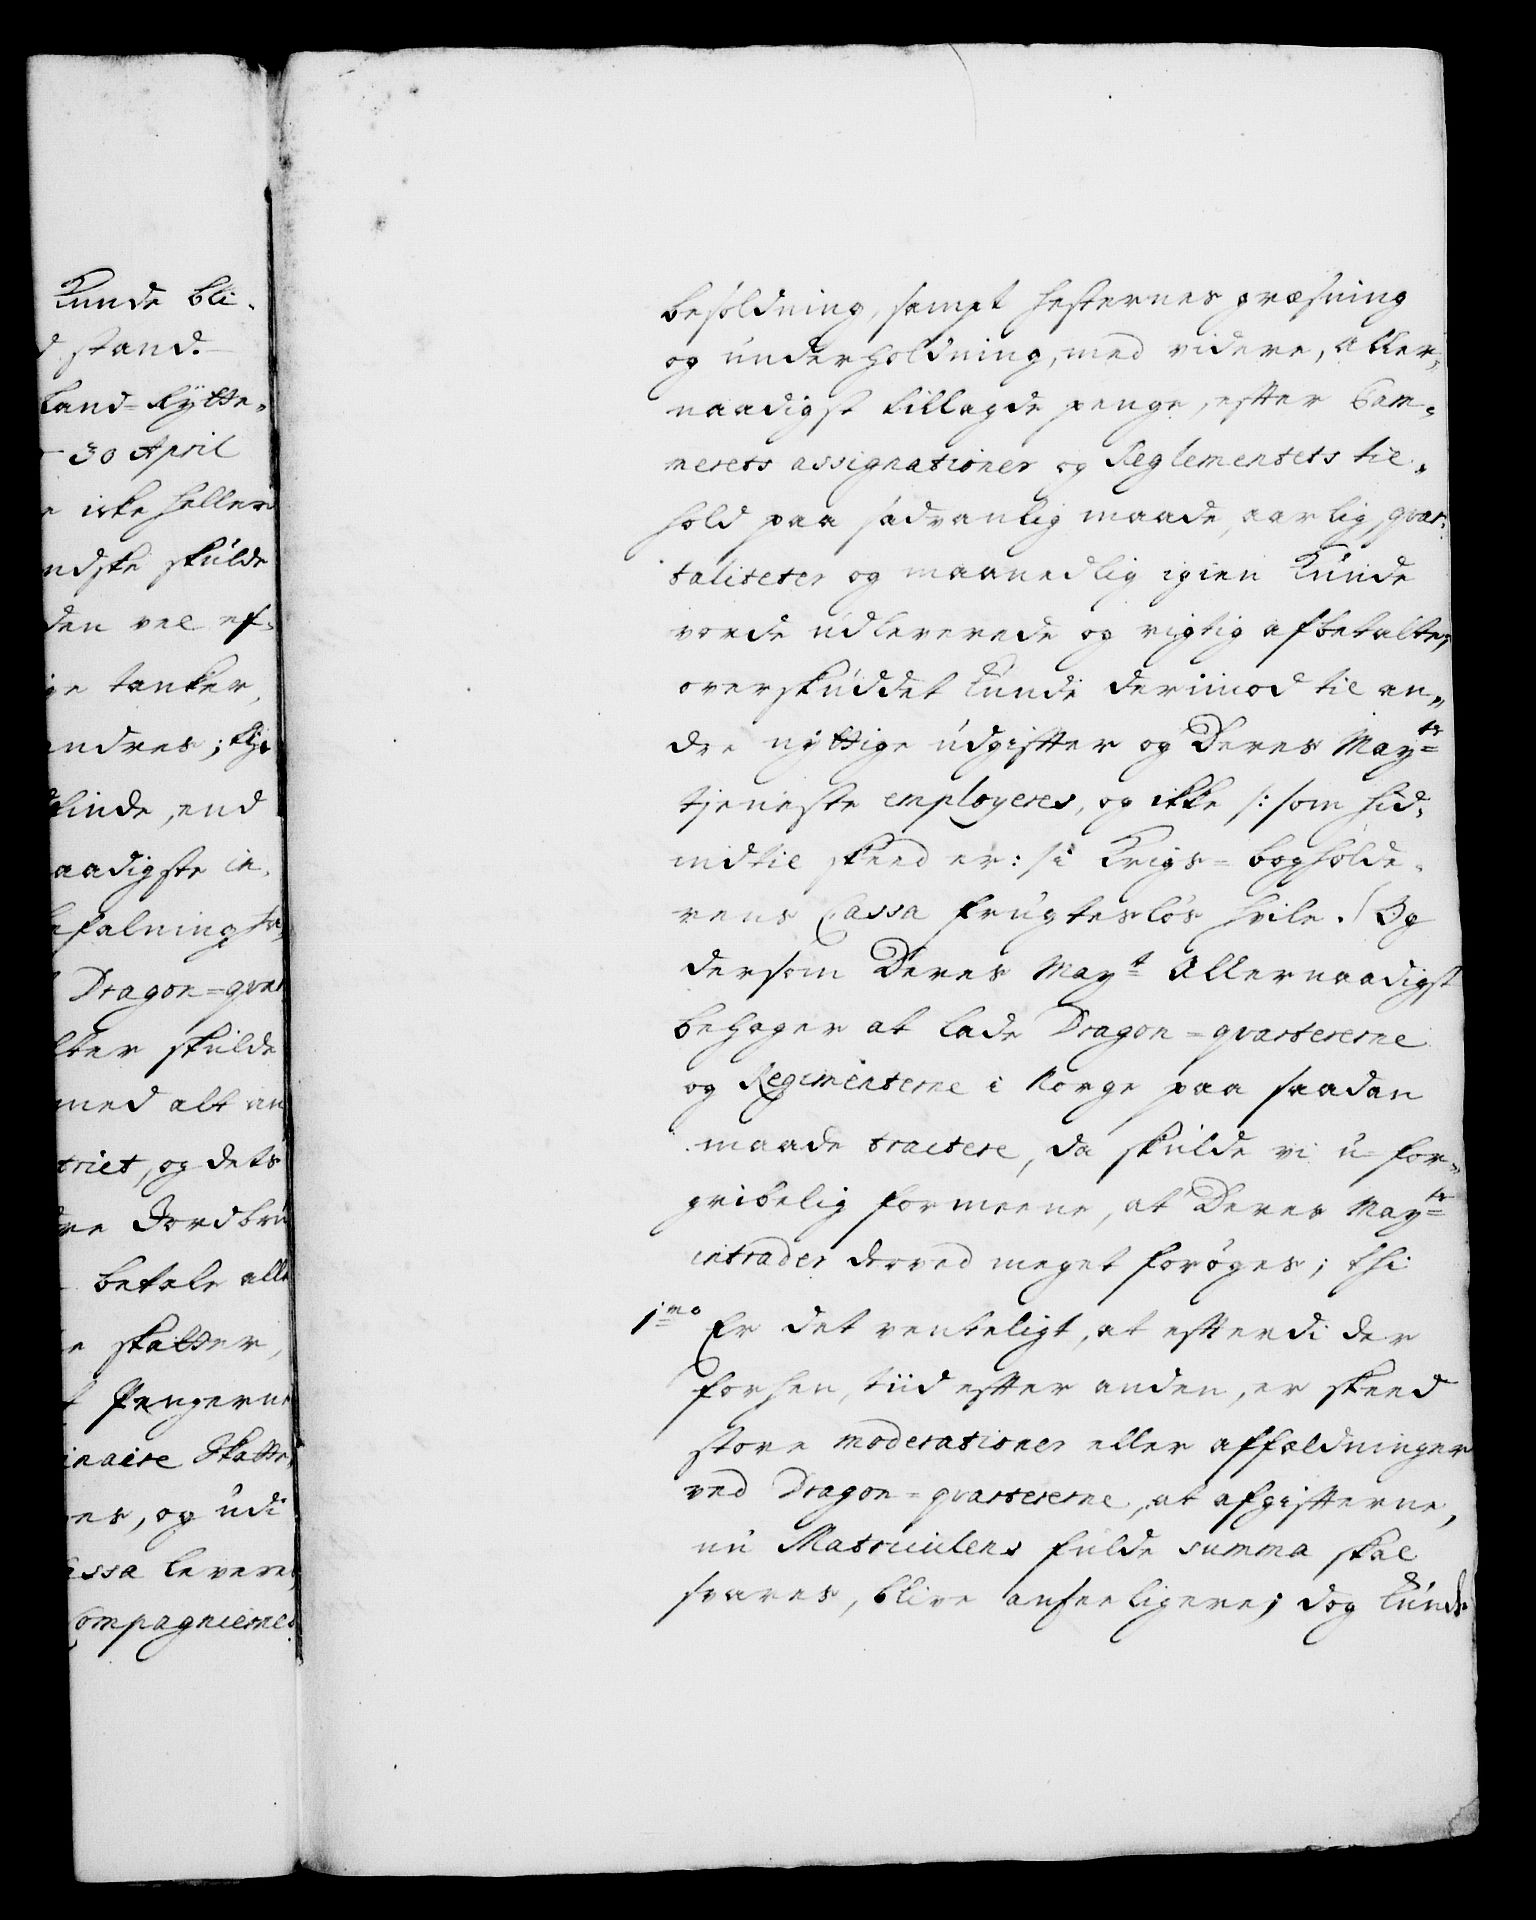 Kunde bli-
d stand.
Land-Rytte-
30 April
e icke heller
ndske skulde
den vel ef-
ge tanker,
endres; thi
kinde, end
aadigste in-
befalning sa-
Dragon=qvar
lter skulde
med alt an
trict, og dets
dre Jordbru
betale alle
e skatter,
t Pengerne
inaire Skatte,
nes, og udi
assa levere,
Compagniernes
besoldning, sampt hesternes græsning
og underholdning, med videre, Aller,,
naadigst tillagde penge, efter Cam-
merets assignationer og Reglementets til-
hold paa sædvanlig maade, aarlig, qvar-
taliteter og maanedlig igien Kunde
vorde udleverede og rigtig afbetalte;
overskuddet kunde derimod til an,,
dre nyttige udgifter og Deres Mayts
tjeneste employeres, og ikke /: som hid-
indtil skeed er :/ i Krigs=bogholde-
rens Cassa frugtesløs hvile. / Og
dersom Deres Mayt Allernaadigst
behager at lade Dragon=qvartererne
og Regimenterne i Norge paa saadan
maade tractere, da skulde vi u-for,,
gribelig formeene, at Deres Mayts
intrader derved meget forøges; thi
1mo Er det venteligt, at efterdi der
forhen, tiid efter anden, er skeed
store moderationer eller affældninger
ved Dragon=qvartererne, at afgifterne,
nu Matriculens fulde summa skal
svares, blive anseeligere; dog kunde